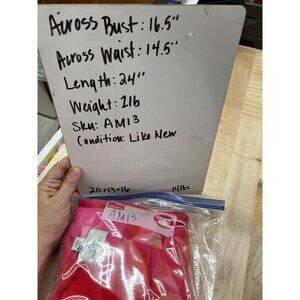 Across Bust: 16.5"
Across Waist: 14.5"
Length: 24"
Weight: 2lb
Sku: AM13
Condition: Like New
20x13x16 14lbs
AM13